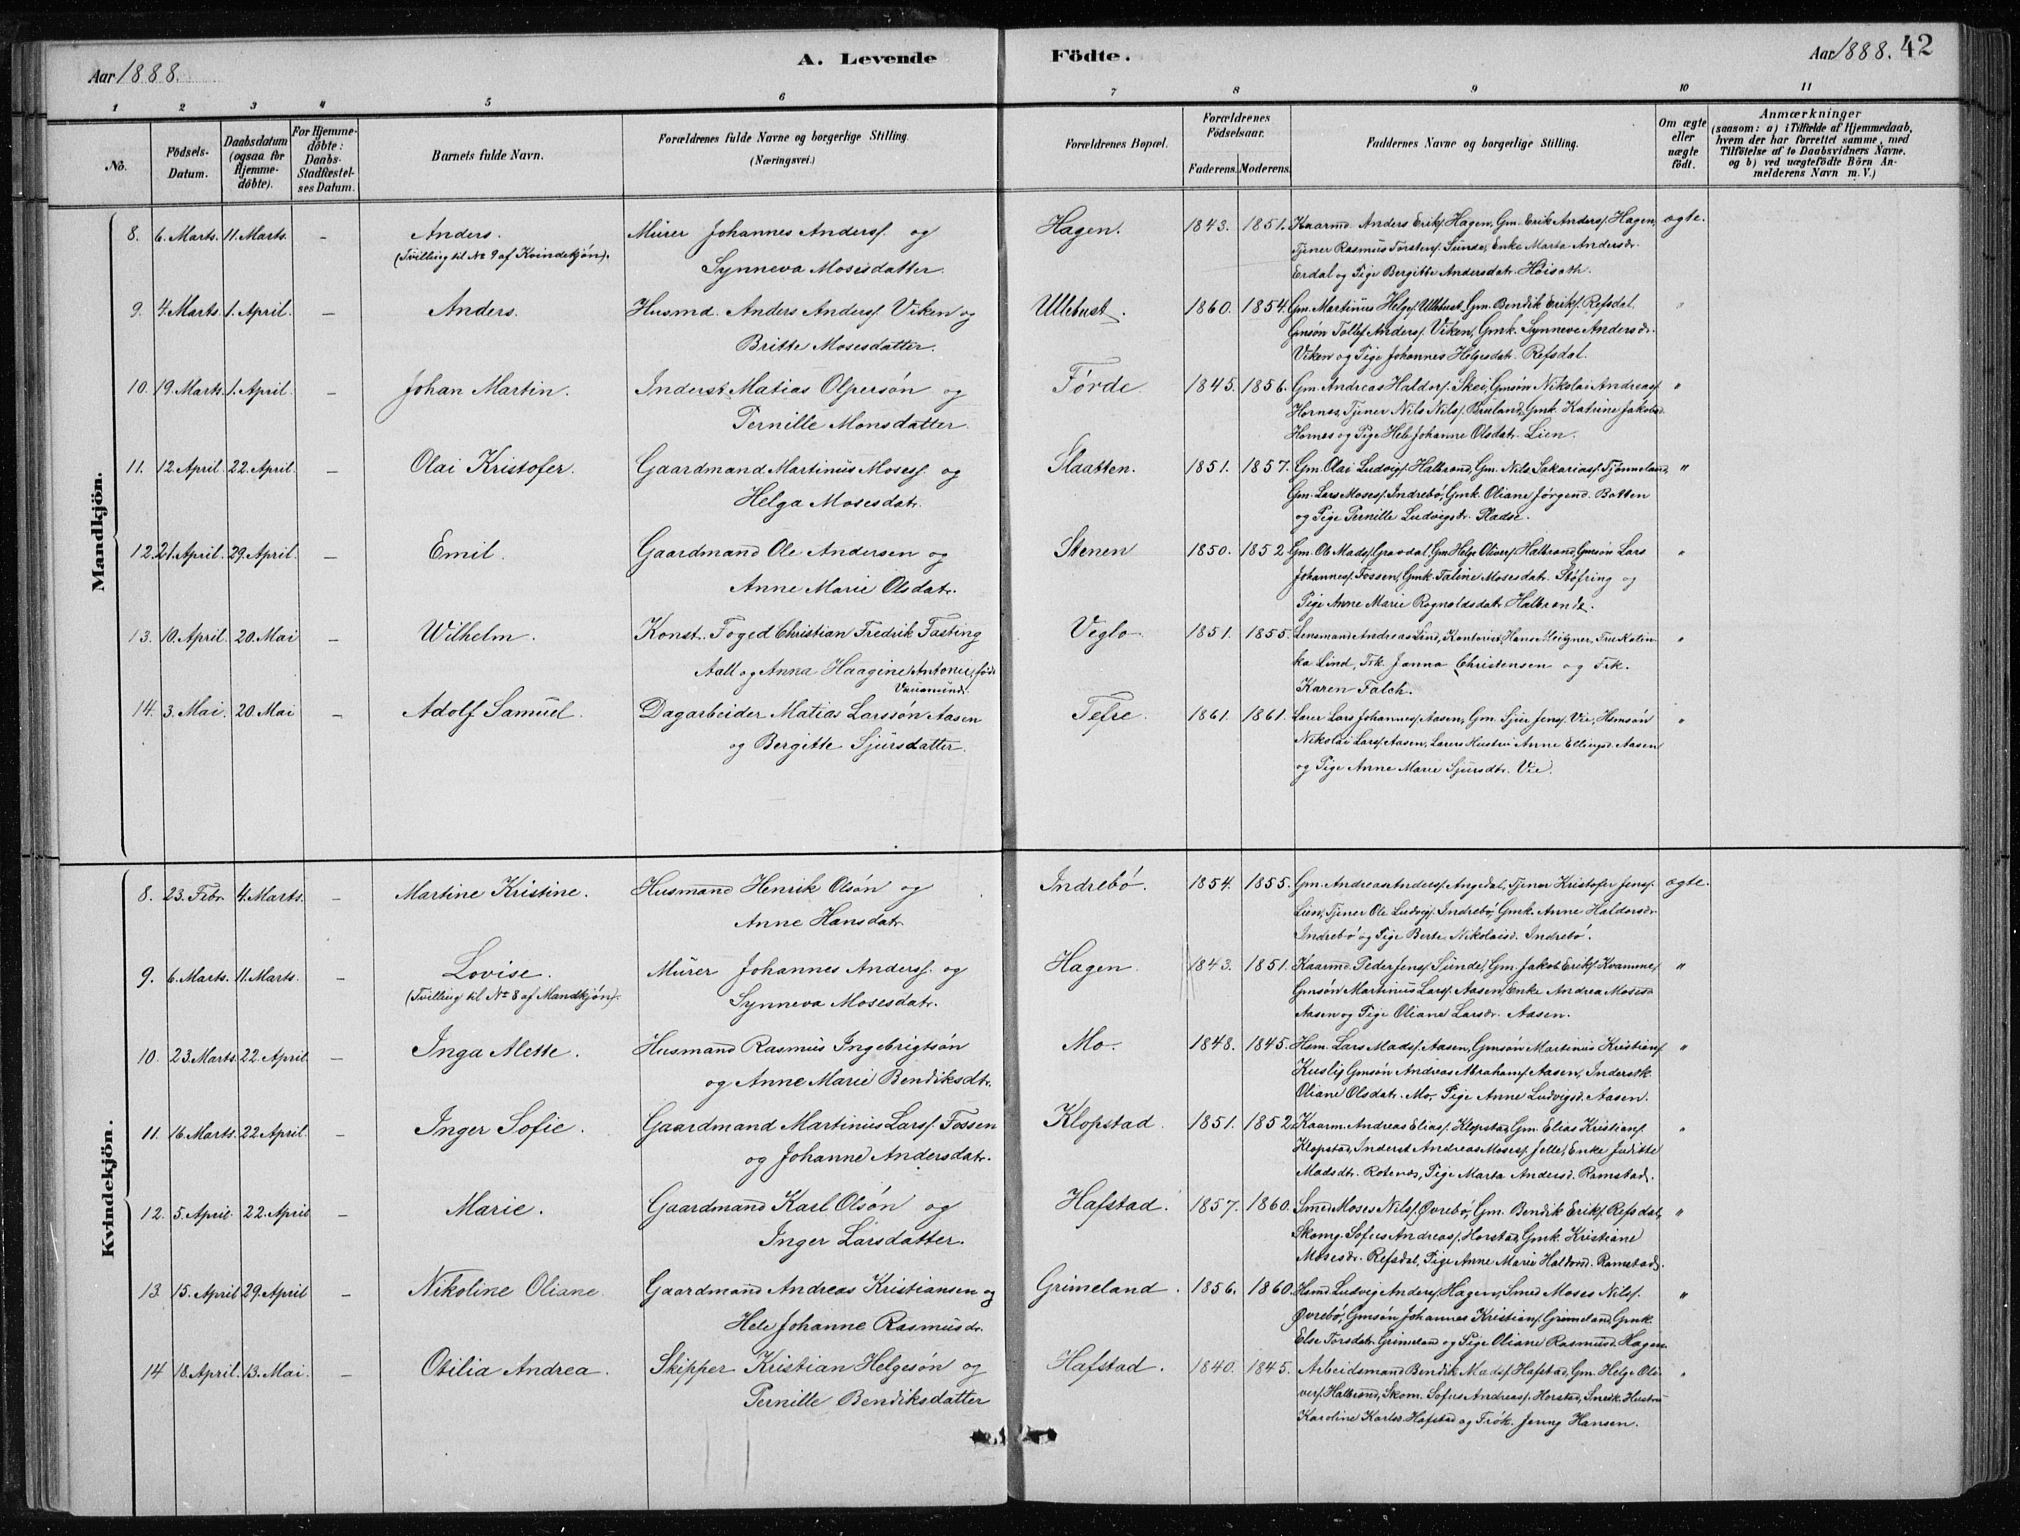 Aar 1888.
A. Levende
Födte.
Aar 1888. 42
1 2 3 4 5 6 7 8 9 10 11
No.
Födsels-Datum.
Daabsdatum (ogsaa for Hjemme-döbte).
For Hjemme-döbte: Daabs-Stadfæstel-ses Datum.
Barnets fulde Navn.
Forældrenes fulde Navne og borgerlige Stilling.
(Næringsvei.)
Forældrenes Bopæl.
Forældrenes Födselsaar.
Faderens. Moderens.
Faddernes Navne og borgerlige Stilling.
Om ægte eller uægte födt.
Anmærkninger
(saasom: a) i Tilfælde af Hjemmedaab, hvem der har forrettet samme, med Tilföielse af to Daabsvidners Navne, og b) ved uægtefödte Börn An-melderens Navn m. V.)
Mandkjön.
8. 6. Marts. 11. Marts. – Anders. Murer Johannes Anders. og Hagen. 1843. 1851. Kaarmd Anders Eriks. Hagen, Gm. Erik Anders. Hagen, ægte.
(Tvilling til No 9 af Kvindekjön). Synneva Mosesdatter. Tjener Rasmus Torstens. Sunde, Enke Marta Andersdr.
Erdal og Pige Bergitte Andersdatr. Höisæth.
9. 4. Marts. 1. April. – Anders. Husmd. Anders Anders. Viken og Ullebust. 1860. 1854. Gm. Martinus Helges. Ullebust, Gm. Bendik Eriks. Refsdal, "
Britte Mosesdatter. Gmsön Tollef Anders. Viken, Gmk. Synneve Andersdr.
Viken og Pige Johannes Helgesdatr. Refsdal.
10. 19. Marts. 1. April. – Johan Martin. Inderst Matias Olpersön og Førde. 1845. 1856. Gm. Andreas Haldors. Skei, Gmsön Nikolai Andreas. "
Pernille Monsdatter. Hornes, Tjener Nils Nils. Bruland, Gmk. Katrine Jakobsd.
Hornes og Pige Hele Johanne Olsdatr. Lien.
11. 12. April. 22. April. – Olai Kristofer. Gaardmand Martinus Moses. og Slaatten. 1851. 1857. Gm. Olai Ludvigs. Halbrend, Gm. Nils Sakarias. Tjönneland, "
Helga Mosesdatr. Gm. Lars Moses. Indrebö, Gmk. Oliane Jörgensd. Botten
og Pige Pernille Ludvigsdr. Pladse.
12. 21. April. 29. April. – Emil. Gaardmand Ole Andersen og Stenen 1850. 1852. Gm. Ole Mads. Gravdal, Gm Helge Olivers. Halbrend, Gmsön Lars "
Anne Marie Olsdatr. Johannes. Fossen, Gmk. Taline Mosesdatr. Stöfring og
Pige Anne Marie Rognaldsdatr. Halbrende.
13. 10. April. 20. Mai – Wilhelm. Konst. Foged Christian Fredrik Fasting Veglo 1851. 1855. Lensmand Andreas Lind, Kontorist Hans, Fru Kolin- "
Aall og Anna Haagine Antonie, født ka Lind, Frk. Janna Christensen og Frk.
Karen Falch.
14. 3. Mai. 20 Mai – Adolf Samuel. Dagarbeider Matias Larssön Aasen Tefre. 1861. 1861. Lærer Lars Johannes. Aasen, Gm. Sjur Jens. Vie, Hsmsön "
og Bergitte Sjursdatter. Nikolai Lars. Aasen, Lærers Hustru Anne Ellingsd. Aasen
og Pige Anne Marie Sjursdtr. Vie.
Kvindekjön.
8. 23. Febr. 4. Marts. – Martine Kristine. Husmand Henrik Olsön og Indrebö. 1854. 1855. Gm. Andreas Anders. Angedal, Tjener Kristofer Jens. ægte.
Anne Hansdatr. Lien, Tjener Ole Ludvigs. Indrebö, Gmk. Anne Haldorsdr.
Indrebö og Pige Berte Nikolaisd. Indrebö.
9. 6. Marts. 11. Marts. – Lovise. Murer Johannes Anders. og Hagen. 1843. 1851. Kaarmd. Peder Jens. Sunde, Gm. Jakob Eriks. Kvamme, "
(Tvilling til No 8 af Mandkjön). Synneva Mosesdatr. Gmsön Martinus Lars. Aasen, Enke Andrea Mosesd.
Aasen og Pige Oliane Larsdr. Aasen.
10. 23. Marts. 22. April. – Inga Alette. Husmand Rasmus Ingebrigtsön Mo. 1848. 1845. Hsm. Lars Mads. Aasen, Gmsön Martinus Kristians. "
og Anne Marie Bendiksdtr. Kusli, Gmsön Andreas Abrahams. Aasen, Inderstk.
Oliane Olsdatr. Mo, Pige Anne Ludvigsd. Aasen.
11. 16. Marts. 22. April. – Inger Sofie. Gaardmand Martinus Lars. Fossen Klopstad. 1851. 1852. Kaarm. Andreas Elias. Klopstad, Gm. Elias Kristians. "
og Johanne Andersdatr. Klopstad, Inderst Andreas Moses. Jelle, Enke Juditte
Madsdtr. Rotenes, Pige Marta Andersd. Ramstad.
12. 5. April. 22. April – Marie. Gaardmand Karl Olsön og Hafstad. 1857. 1860. Smed Moses Nils. Övrebö, Gm. Bendik Eriks. Refsdal, "
Inger Larsdatter. Skomg. Sofus Andreas. Horstad, Gmk. Kristiane
Mosesdr. Refsdal, Pige Anne Marie Haldorsd. Ramstad.
13. 15. April 29. April – Nikoline Oliane. Gaardmand Andreas Kristiansen og Grimeland. 1856. 1860. Hsmd Ludvig Anders. Hagen, Smed Moses Nils. "
Hele Johanne Rasmusdr. Övrebö, Gmsön Johannes Kristians. Grimeland, Gmk.
Else Torsdatr. Grimeland og Pige Oliane Rasmusd. Hagen.
14 18. April. 13. Mai. – Otilia Andrea. Skipper Kristian Helgesön og Hafstad. 1840. 1845. Arbeidsmand Bendik Mads. Hafstad, Gm. Helge Oli- "
Pernille Bendiksdatter vers. Halbrend, Skom. Sofus Andreas. Horstad, Snedk. Hustru
Karoline Karlsd. Hafstad og Frök. Jenny Hansen.